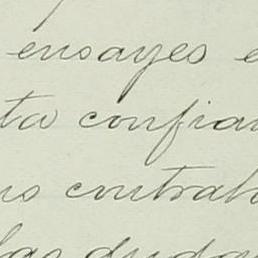 ensayes e
ta confian
contrat
las dudas